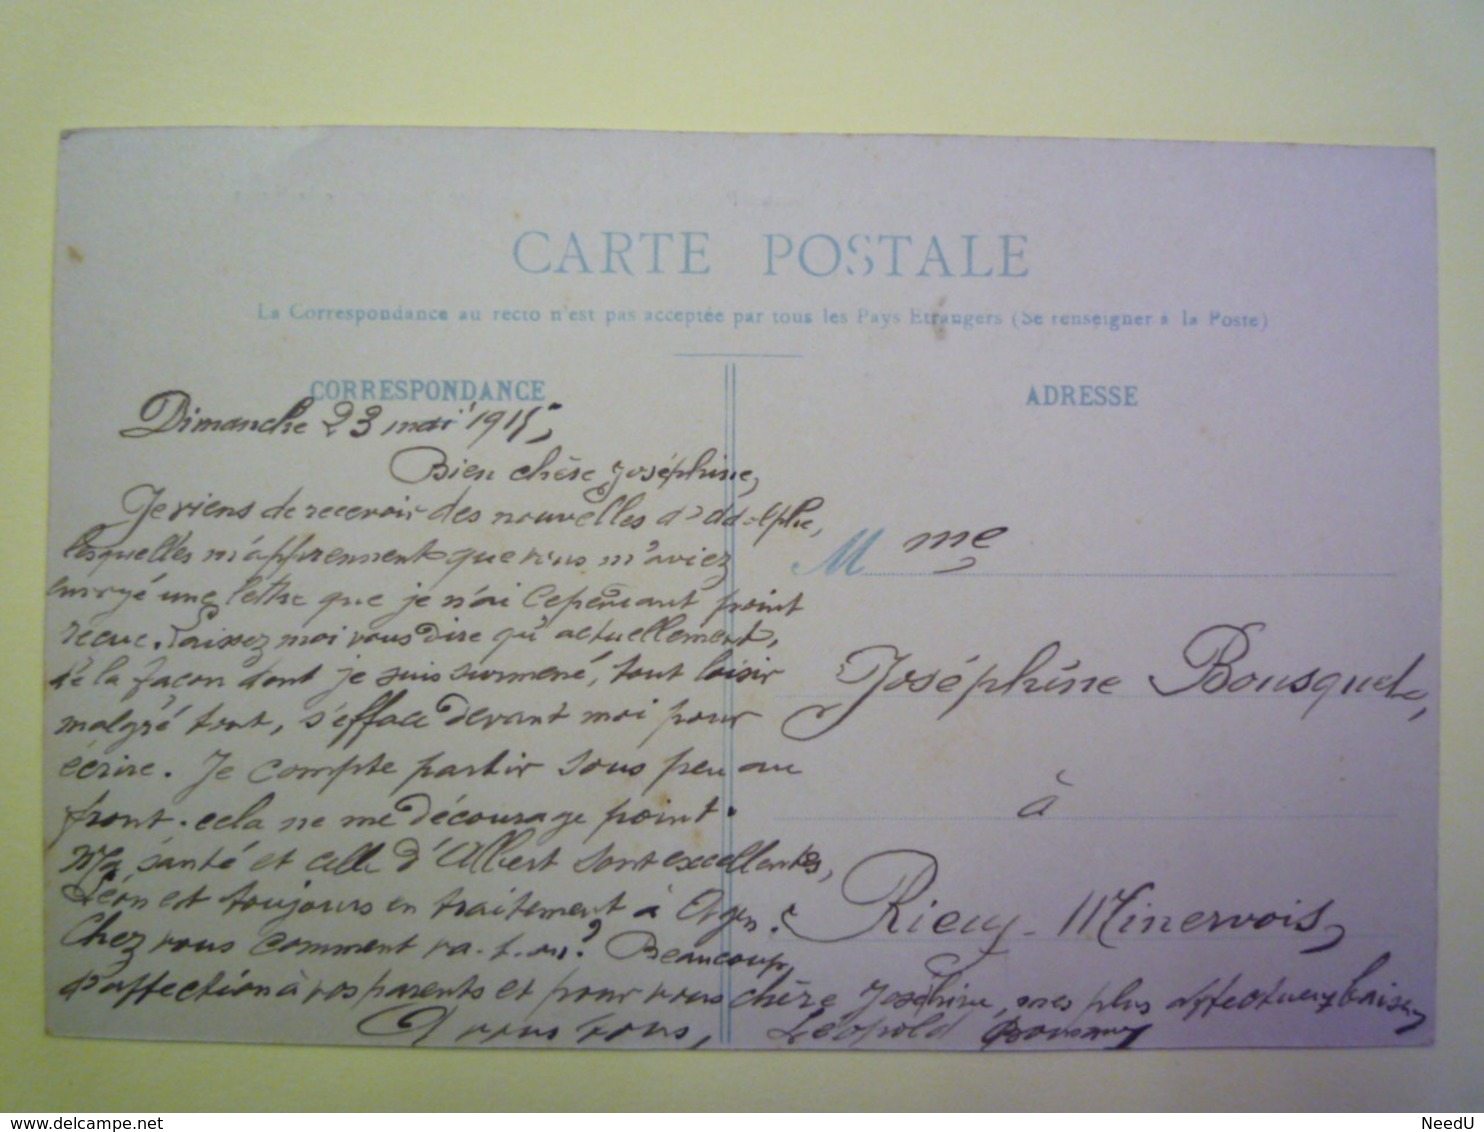 CARTE POSTALE
La Correspondance au recto n'est pas acceptée par tous les Pays Etrangers (Se renseigner à la Poste)
CORRESPONDANCE
Dimanche 23 mai 1915,
Bien chère Joséphine,
Je viens de recevoir des nouvelles d'Adolphe,
lesquelles m'apprennent que vous m'aviez
envoyé une lettre que je n'ai cependant point
reçue. Laissez moi vous dire qu'actuellement,
de la façon dont je suis surmené, tout loisir
malgré tout, s'efface devant moi pour
écrire. Je compte partir sous peu au
front. cela ne me décourage point.
Ma santé et celle d'Albert sont excellentes,
Léon est toujours en traitement à Agen.
Chez vous comment va-t-on? Beaucoup
d'affection à vos parents et pour vous chère Joséphine, mes plus affectueux baisers
A vous tous, Léopold
ADRESSE
M me
Joséphine Bousquet,
à
Rieux-Minervois
NeedU